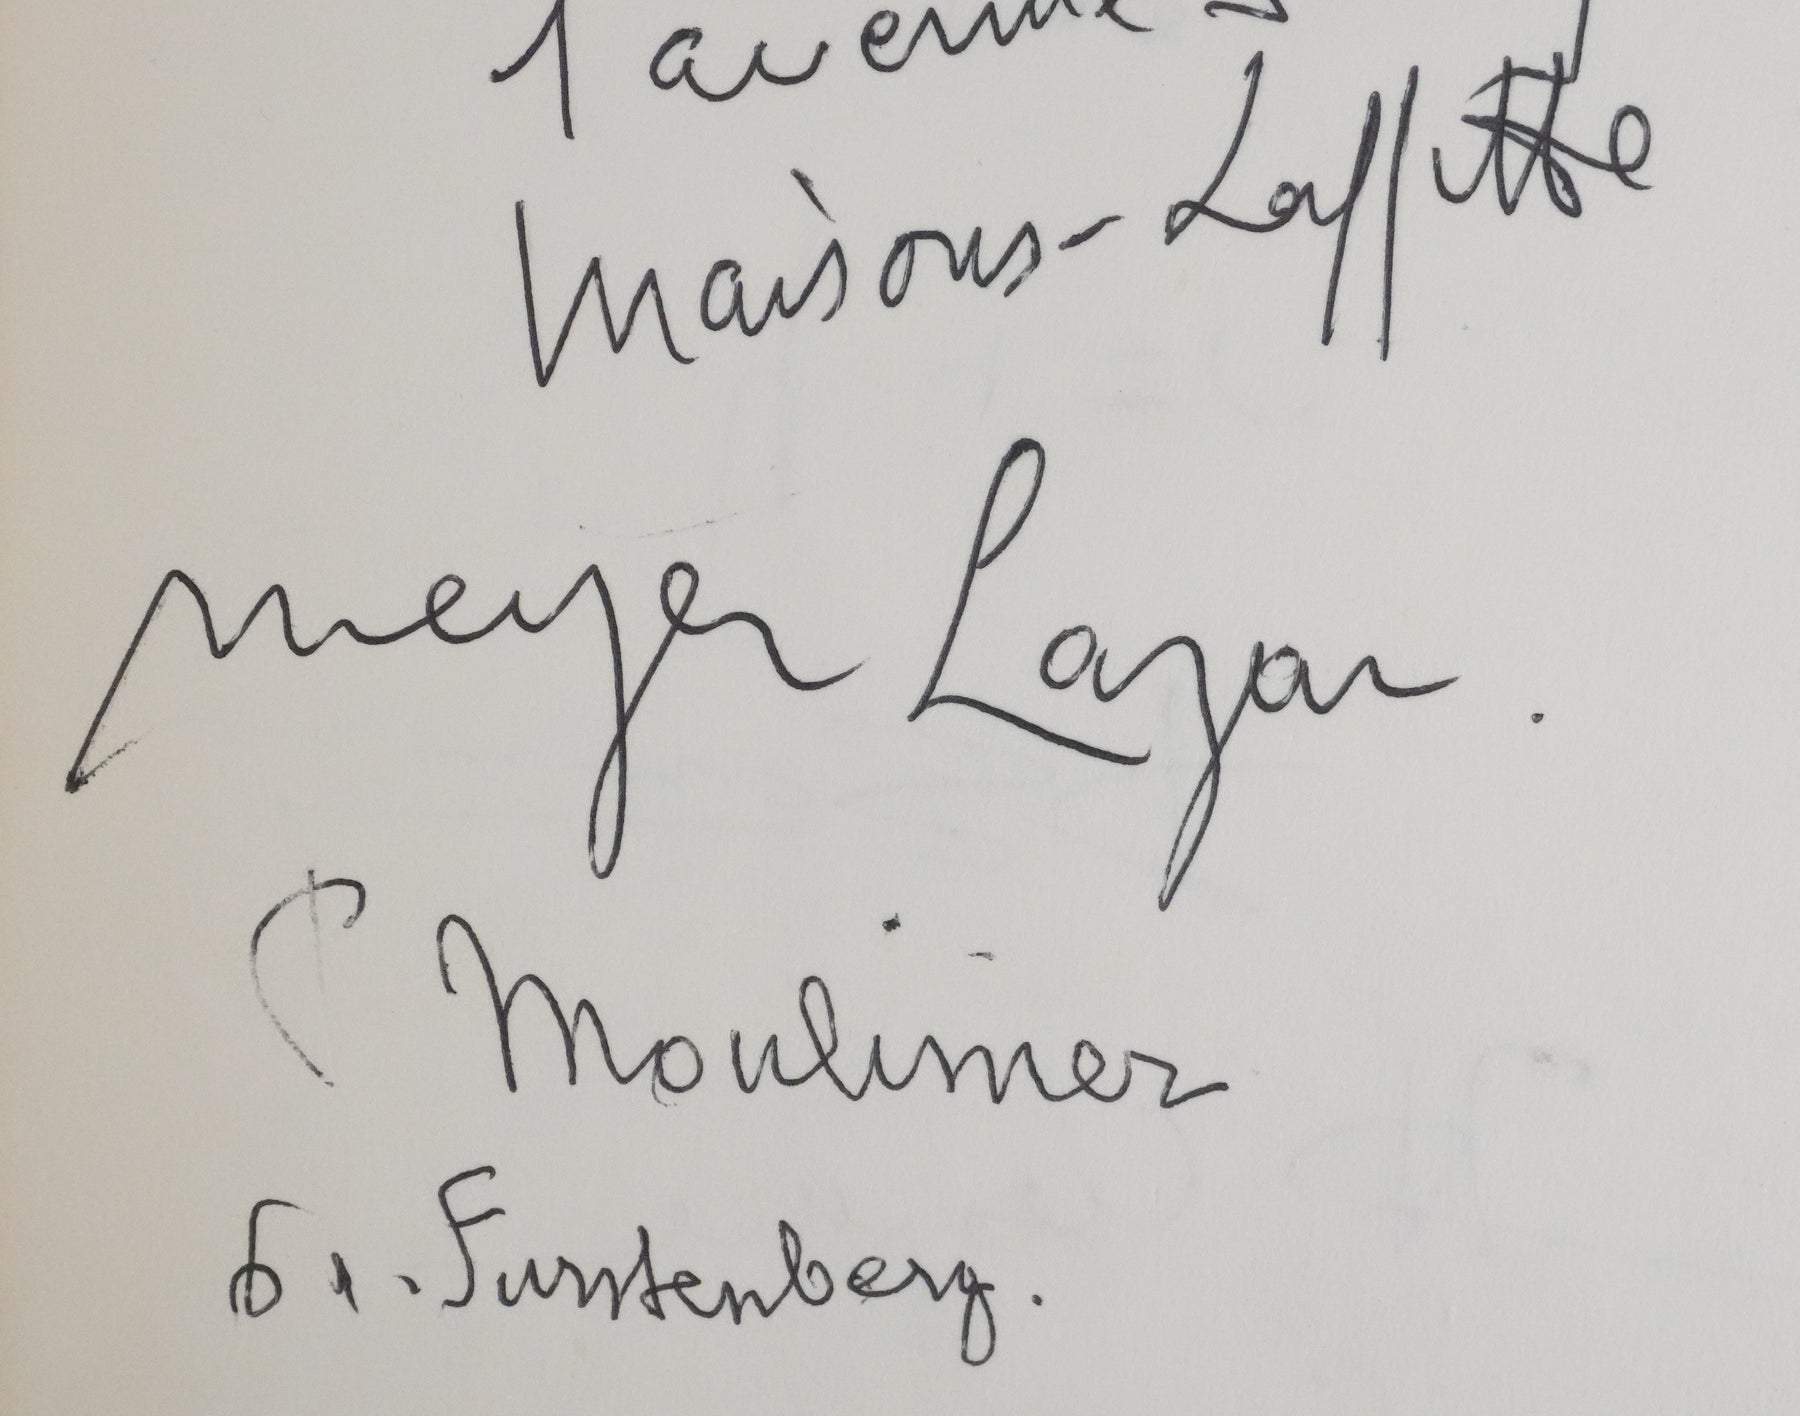 1 avenue
Maisons-Laffitte
Meyer Lazar.
Moulinier
6 r. Furstenberg.